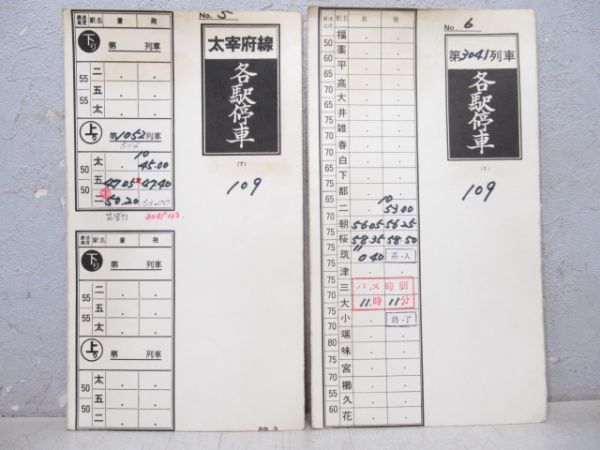 No. 5
経過速度 駅名 着 発
下り 第 列車
二 . .
55
五 . .
55
太 . .
上り 第1052列車
太 . 10 45.00
50
五 47.05 47.40
50
二 50.20 53.00
経過速度 駅名 着 発
下り 第 列車
二 . .
55
五 . .
55
太 . .
上り 第 列車
太 . .
50
五 . .
50
二 . .
太宰府線
各駅停車
(7)
109
59.3
No. 6
経過速度 駅名 着 発
福
50
薬
60
平
70
高
70
大
井
雑
春
白
下
都
65
二 10 53.00
朝 56.05 56.25
桜 58.35 58.50
筑 11 0.40
75
津
三 バス時間
大 11時11分
小 終・了
端
味
宮
櫛
久
花
60
第3041列車
各駅停車
(1)
109